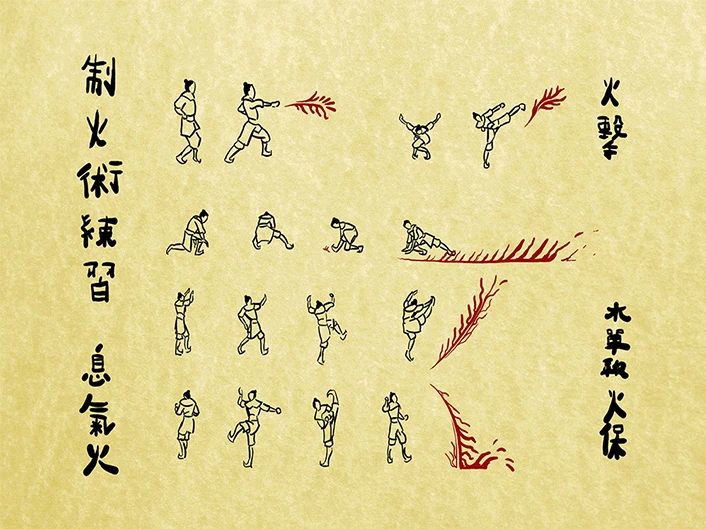 制火術練習
息氣火
火擊
水單 火保